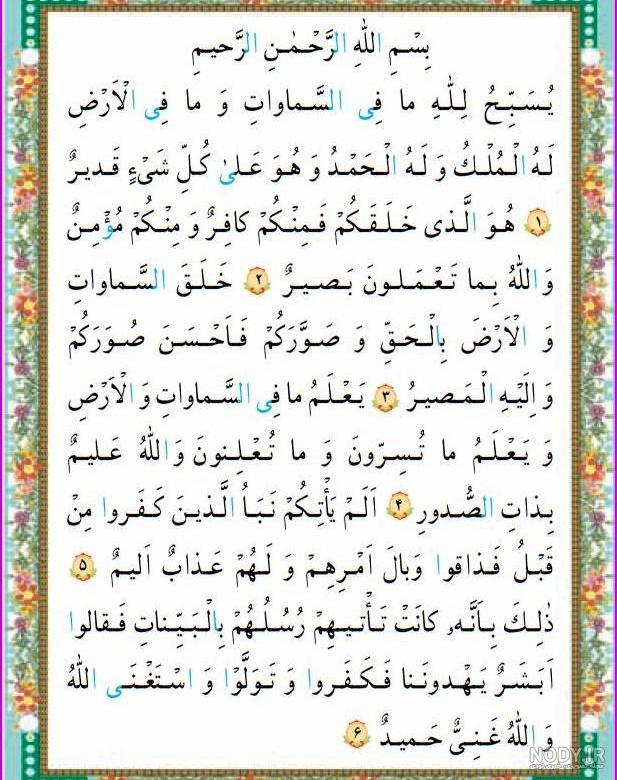 بِسْمِ اللهِ الرَّحْمٰنِ الرَّحیمِ
یُسَبِّحُ لِلّٰهِ ما فِی السَّماواتِ وَ ما فِی الْاَرْضِ
لَهُ الْمُلْكُ وَ لَهُ الْحَمْدُ وَ هُوَ عَلیٰ كُلِّ شَیْءٍ قَدیرٌ
﴿۱﴾ هُوَ الَّذی خَلَقَكُمْ فَمِنْكُمْ كافِرٌ وَ مِنْكُمْ مُؤْمِنٌ
وَ اللهُ بِما تَعْمَلونَ بَصیرٌ ﴿۲﴾ خَلَقَ السَّماواتِ
وَ الْاَرْضَ بِالْحَقِّ وَ صَوَّرَكُمْ فَاَحْسَنَ صُوَرَكُمْ
وَ اِلَیْهِ الْمَصیرُ ﴿۳﴾ یَعْلَمُ ما فِی السَّماواتِ وَ الْاَرْضِ
وَ یَعْلَمُ ما تُسِرّونَ وَ ما تُعْلِنونَ وَ اللهُ عَلیمٌ
بِذاتِ الصُّدورِ ﴿۴﴾ اَلَمْ یَأْتِكُمْ نَبَأُ الَّذینَ كَفَروا مِنْ
قَبْلُ فَذاقوا وَبالَ اَمْرِهِمْ وَ لَهُمْ عَذابٌ اَلیمٌ ﴿۵﴾
ذٰلِكَ بِاَنَّهُ كانَتْ تَأْتیهِمْ رُسُلُهُمْ بِالْبَیِّناتِ فَقالوا
اَبَشَرٌ یَهْدونَنا فَكَفَروا وَ تَوَلَّوْا وَ اسْتَغْنَی اللهُ
وَ اللهُ غَنِیٌّ حَمیدٌ ﴿۶﴾
NODY.IR